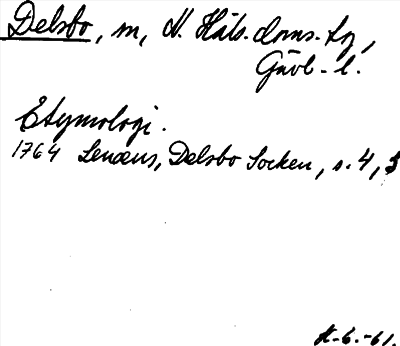 Delsbo, m, N. Häls. doms. hg,
Gävl. l.
Etymologi.
1764 Lenæus, Delsbo Socken, s. 4, 5
H. 6. -61.